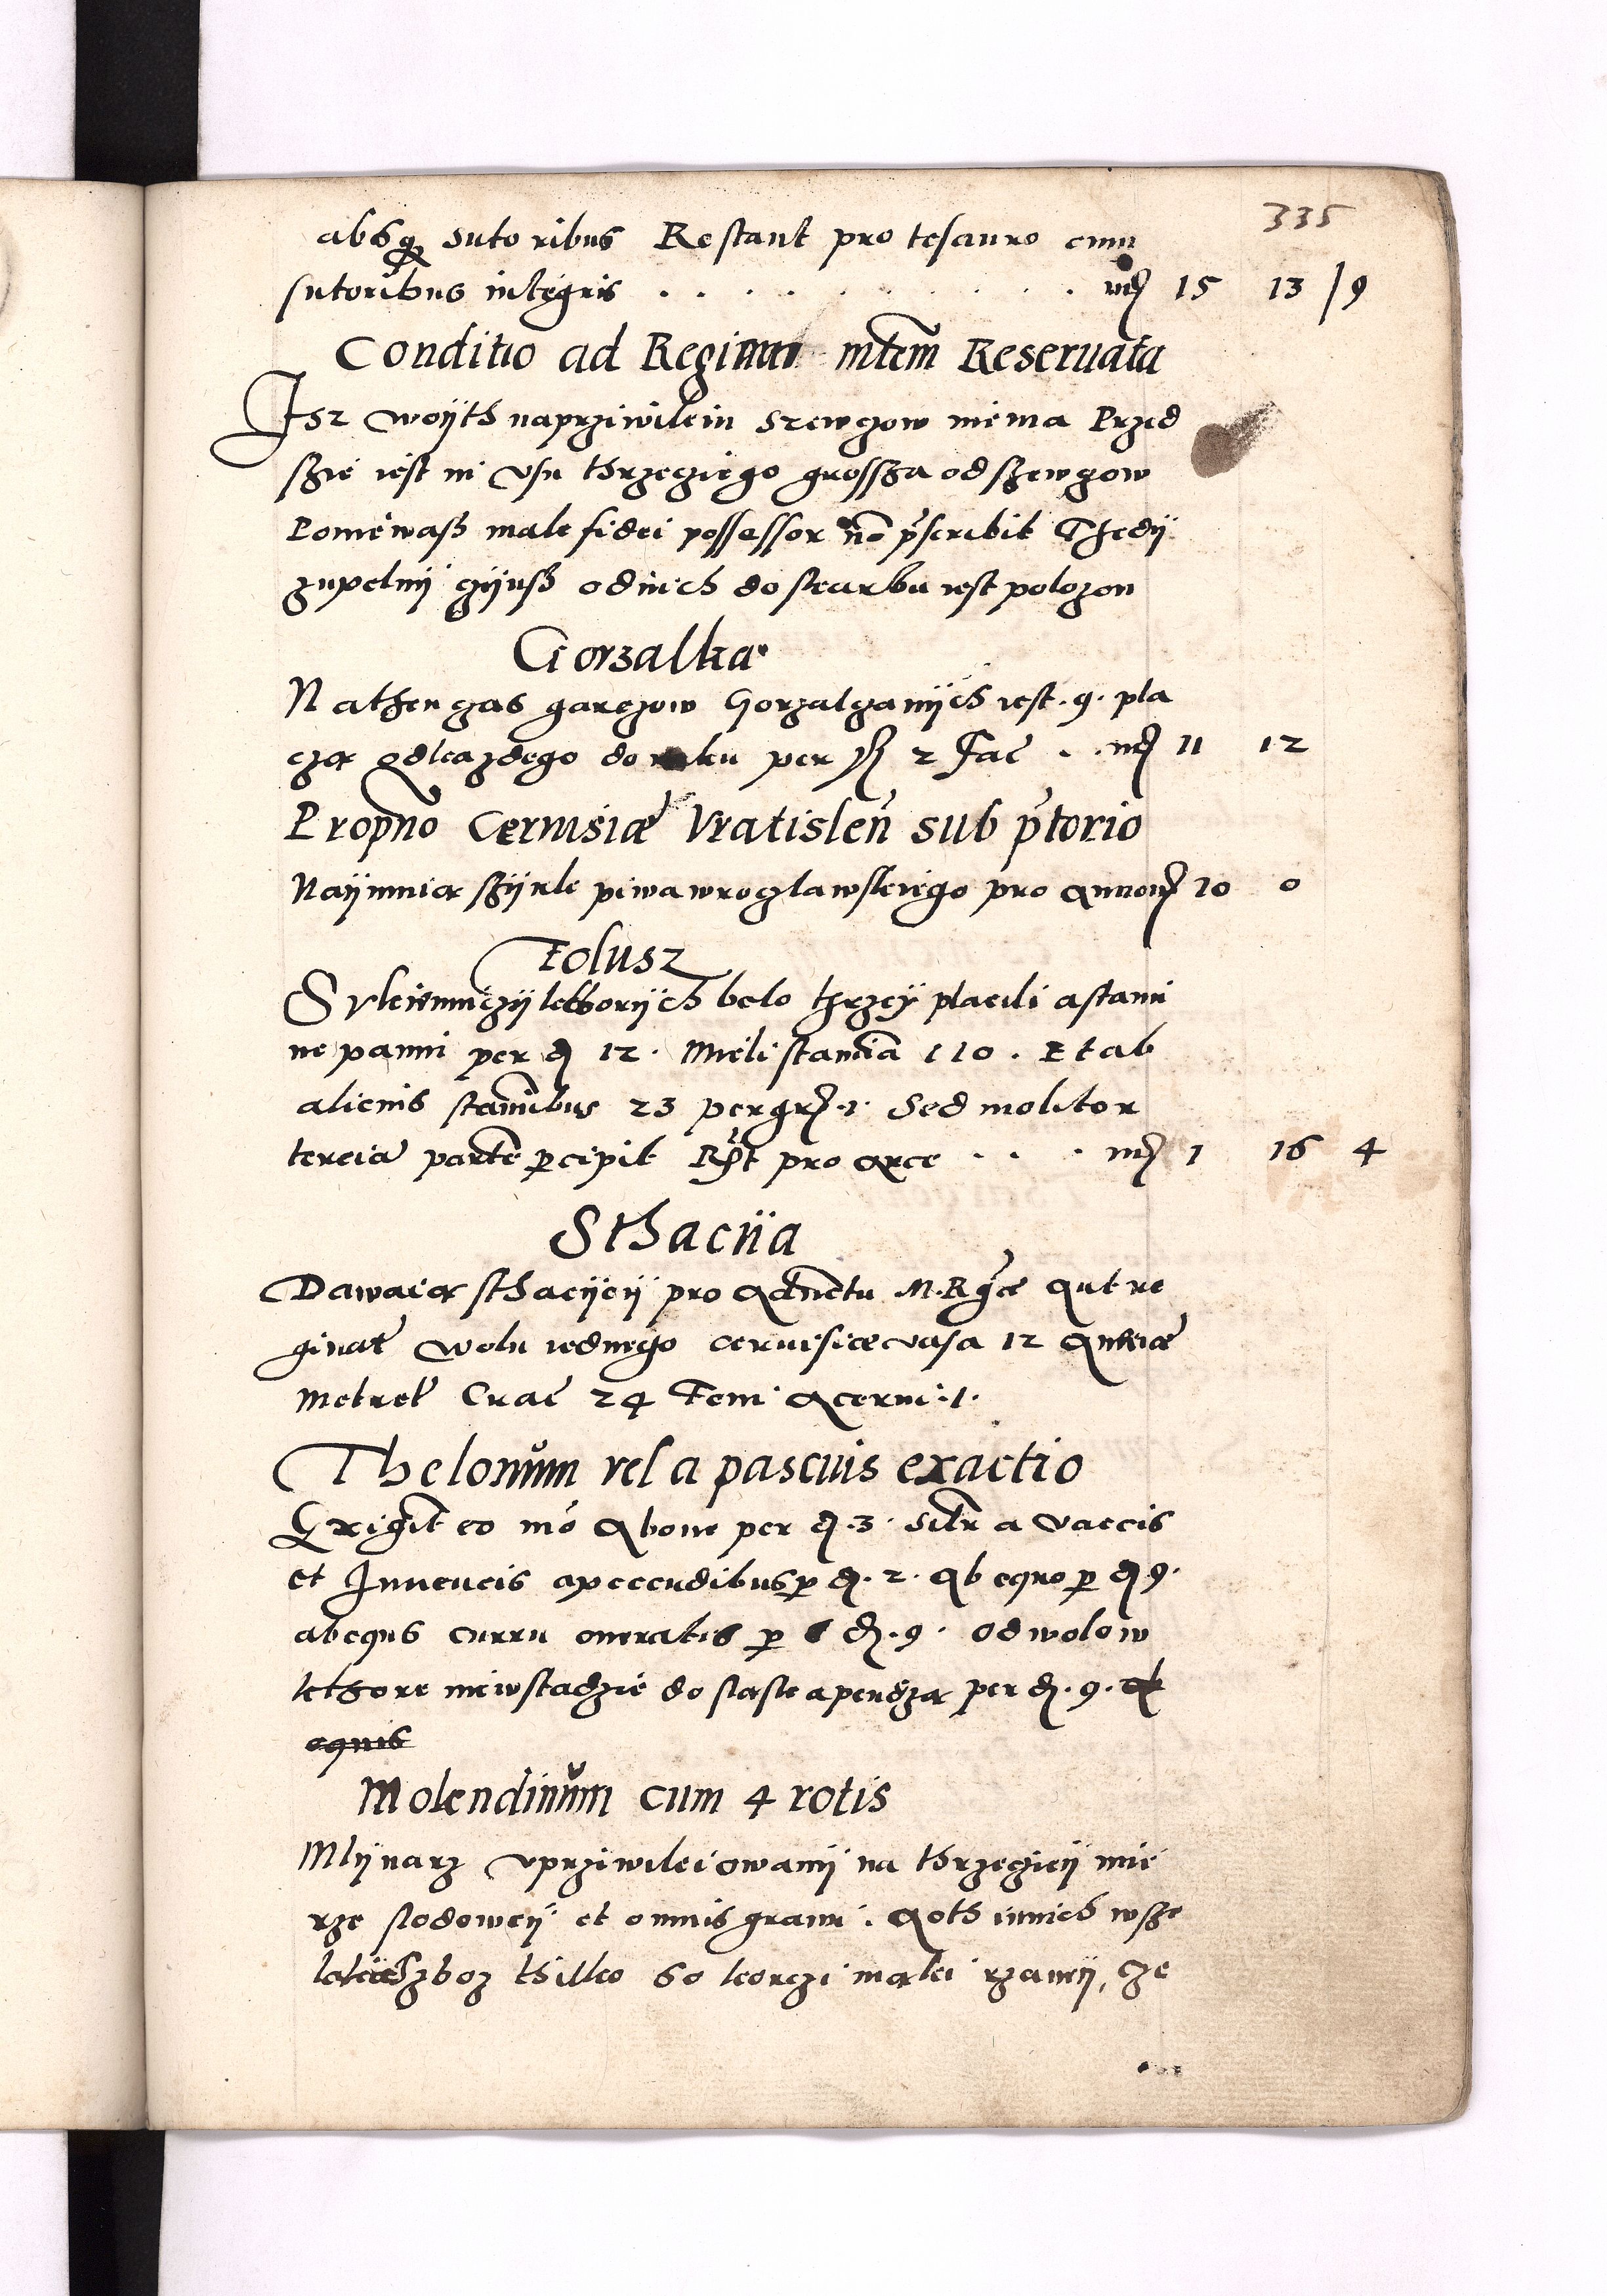 335
absq sutoribus Restant pro tesauro cum
sutoribus integris . . . . . . . . . mr 15 13 / 9
Conditio ad Regiam mtem Reseruata
Isz woÿth naprziwileiu szewczow niema Przed
szie iest in vsu thrzecziego grossza od szewczow
Poniewasz male fidei possessor no pscribit Thedÿ
zupelnÿ czÿnsz odnich do skarbu iest polozon
Gorzalka
Nathen czas garczow Gorzalczanÿch iest . 9 . pla
cza odkazdego do roku per sx 2 fac . . mr 11 12
Propno Ceruisiæ Vratislen sub ptorio
Naÿmuia szÿnk piwa wroczlawskiego pro anno mr 10 0
Folusz
Sukienniczÿ kthorÿch belo thrzeÿ placili a stami
ne panni per d 12 . Mieli stamia 110 . Et ab
alienis staminibus 23 per gr . 1 . Sed molitor
tercia parte pcipit Rst pro arce . . . mr 1 16 4
Sthaciia
Dawaia sthacÿeÿ pro aduentu M. Rgie aut re
ginal wolu iednego ceruisiæ vasa 12 auenæ
metret Crac 24 Feni acerui . 1 .
Theloneum vel a pascuis exactio
Exigit eo mo a boue per d . 3 . siltr a vaccis
et Iuuencis a pecudibus p d . 2 . ab equo p d 9 .
ab equs curru oneratis p d . 9 . od wolow
kthore niewstadzie do statk a pendza per d . 9 . ab
equis
Molendinum cum 4 rotis
Mlÿnarz vprziwileiowanÿ na thrzecieÿ mie
rze slodoweÿ et omnis grani . A oth innich wsze
lakich zboz thilko 60 korczi maki rzanei, Cze